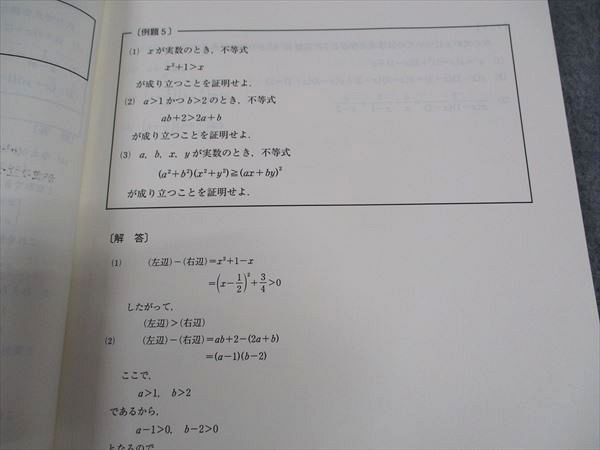 〔例題５〕
(1) xが実数のとき，不等式
x²+1>x
が成り立つことを証明せよ．
(2) a>1かつb>2のとき，不等式
ab+2>2a+b
が成り立つことを証明せよ．
(3) a, b, x, yが実数のとき，不等式
(a²+b²)(x²+y²)≧(ax+by)²
が成り立つことを証明せよ．
〔解 答〕
(1) (左辺)−(右辺)=x²+1−x
=(x−1/2)²+3/4>0
したがって，
(左辺)>(右辺)
(2) (左辺)−(右辺)=ab+2−(2a+b)
=(a−1)(b−2)
ここで，
a>1, b>2
であるから，
a−1>0, b−2>0
となるので